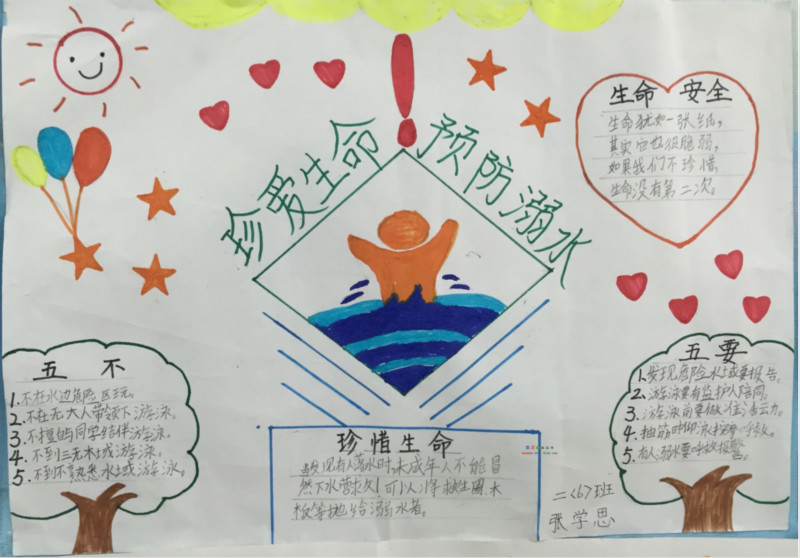 珍爱生命
预防溺水
生命 安全
生命犹如一张纸，
其实它也很脆弱，
如果我们不珍惜，
生命没有第二次。
五 不
1.不在水边危险区玩。
2.不在无大人带领下游泳。
3.不擅自与同学结伴游泳。
4.不到三无水域游泳。
5.不到不熟悉水域游泳。
五要
1.发现危险水域要报告。
2.游泳要有监护人陪同。
3.游泳前要做准备运力。
4.抽筋时仰泳 呼救。
5.有人溺水要呼救报警。
珍惜生命
发现有人落水时，未成年人不能冒
然下水营救，可以将救生圈、木
板等抛给溺水者。
二〈6〉班
张学思